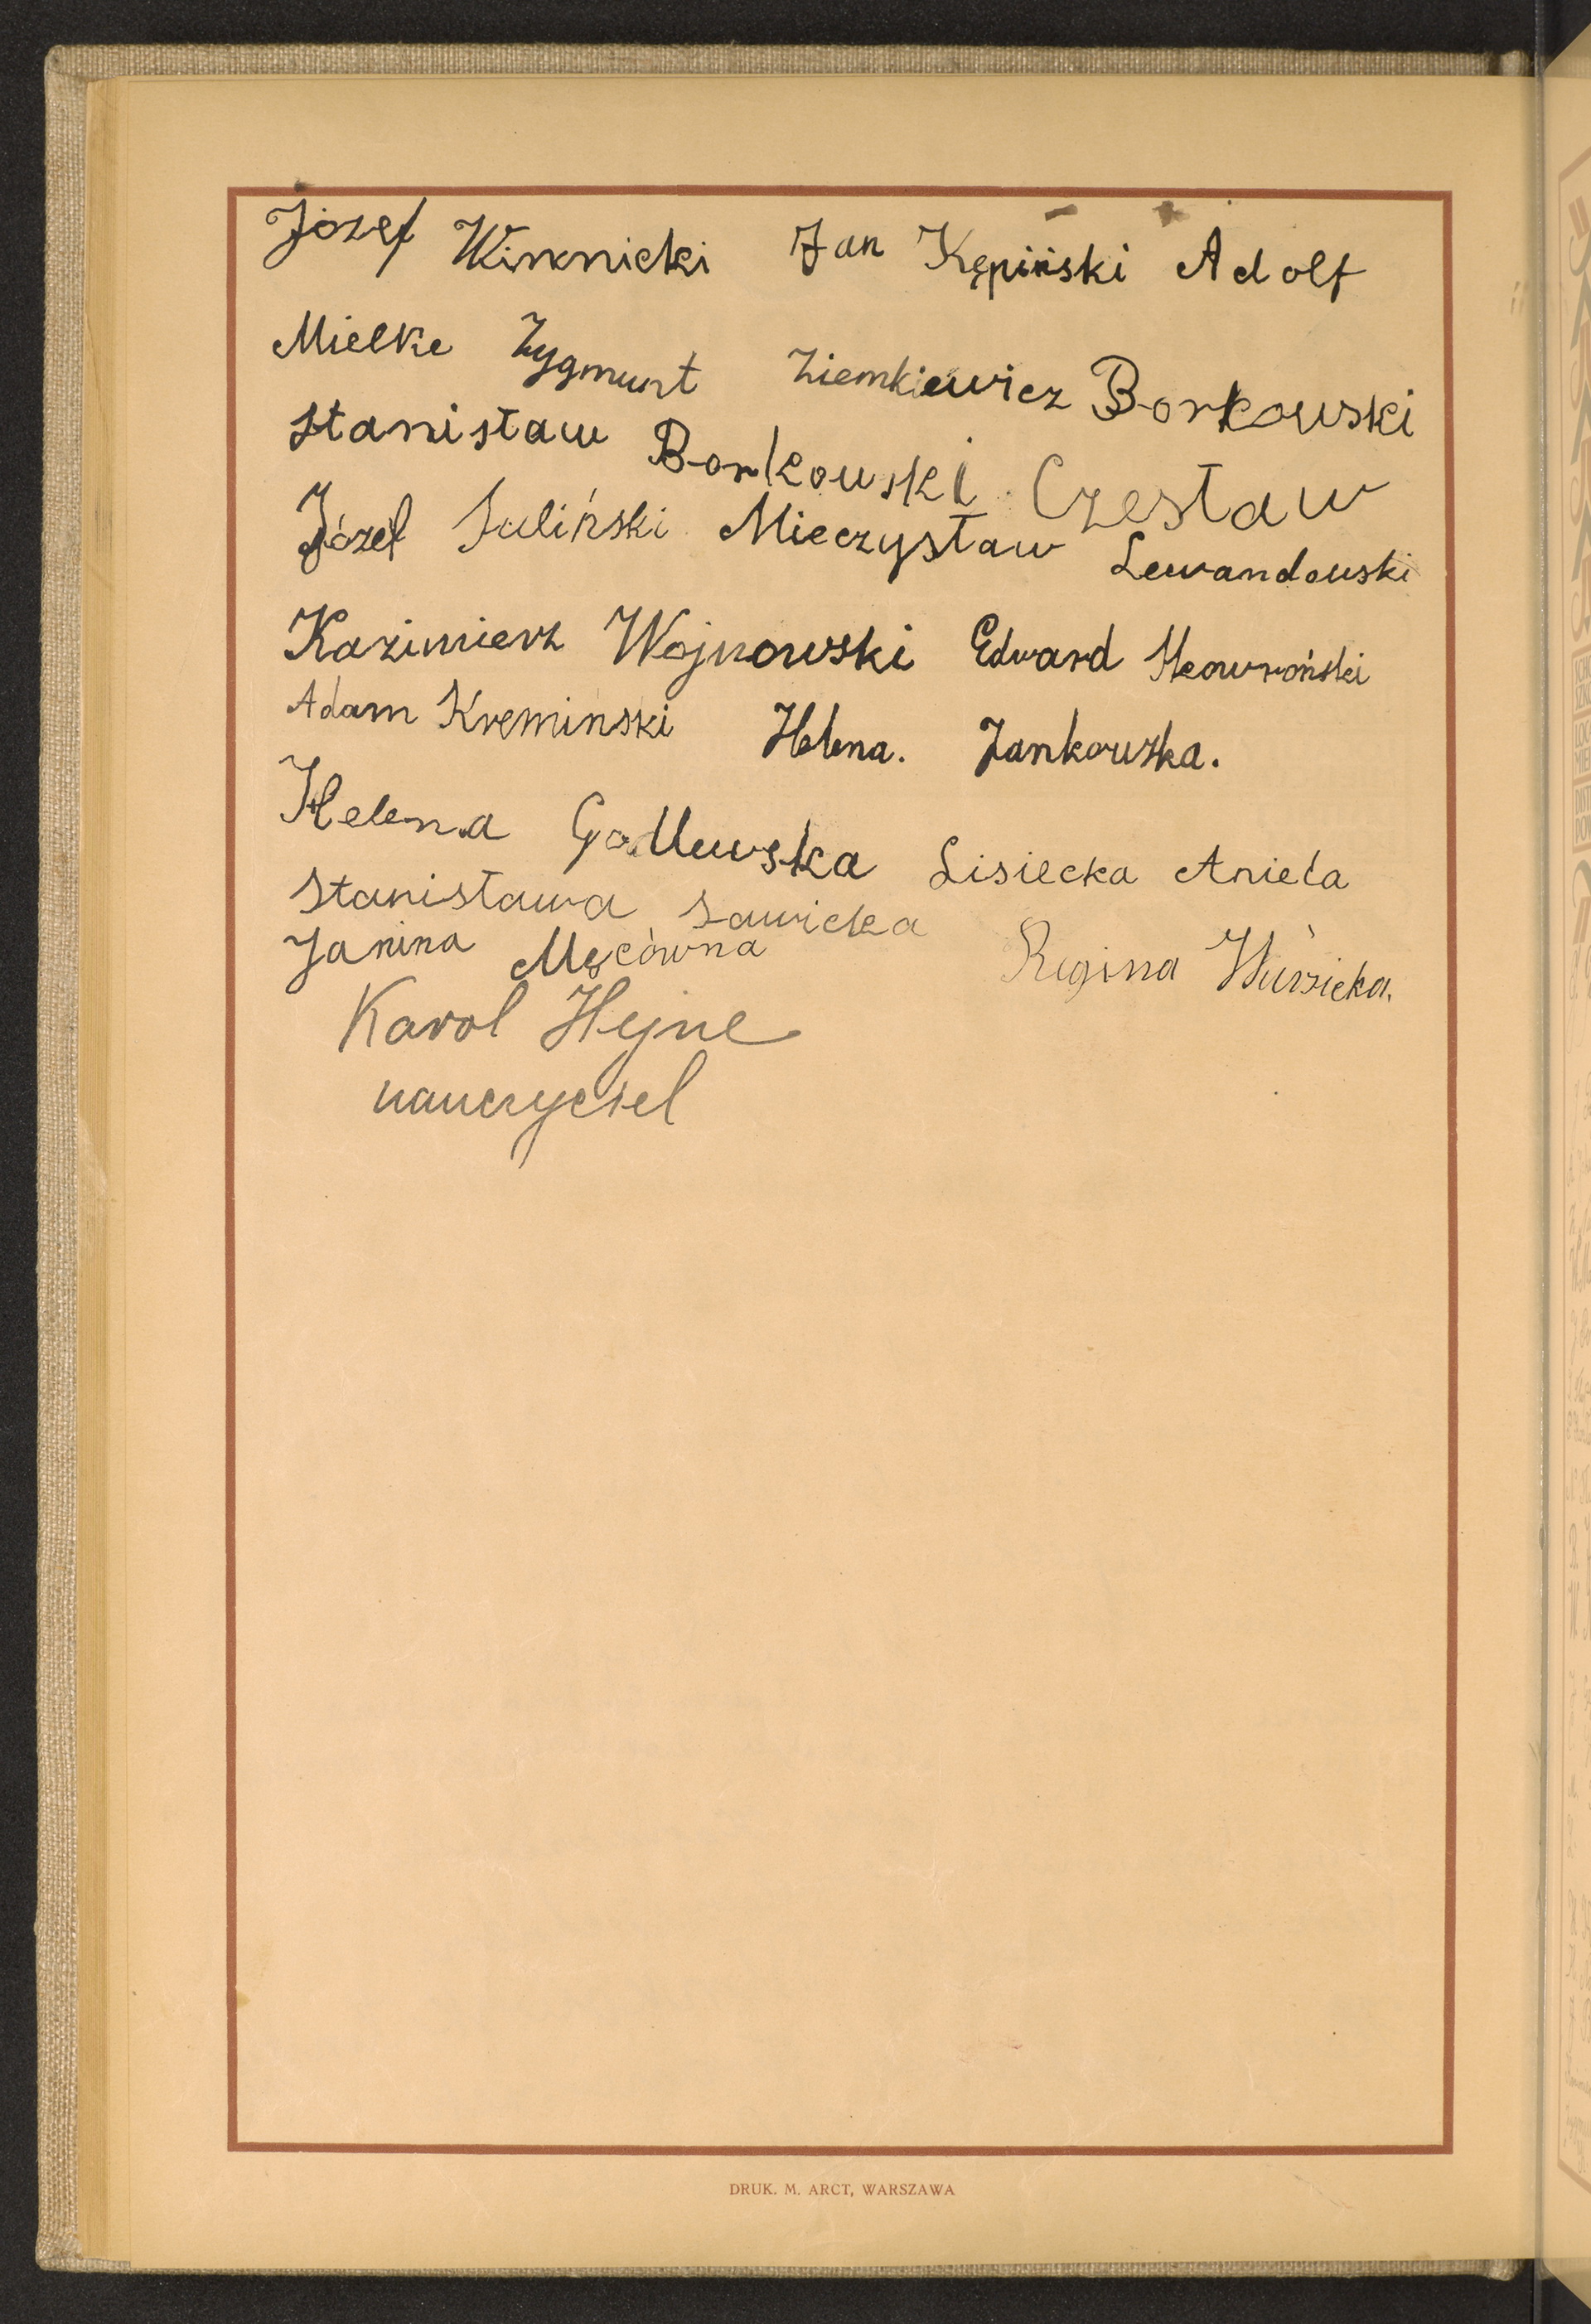 Józef Winnicki Jan Kępiński Adolf
Mielke Zygmunt Ziemkiewicz Borkowski
Stanisław Borkowski Czesław
Józef Juliński Mieczysław Lewandowski
Kazimierz Wojnowski Edward Skowroński
Adam Kremiński Helena. Jankowska.
Helena Godlewska Lisiecka Aniela
Stanisława Sawicka
Janina Regina
Karol Hejne
nauczyciel
DRUK. M. ARCT, WARSZAWA